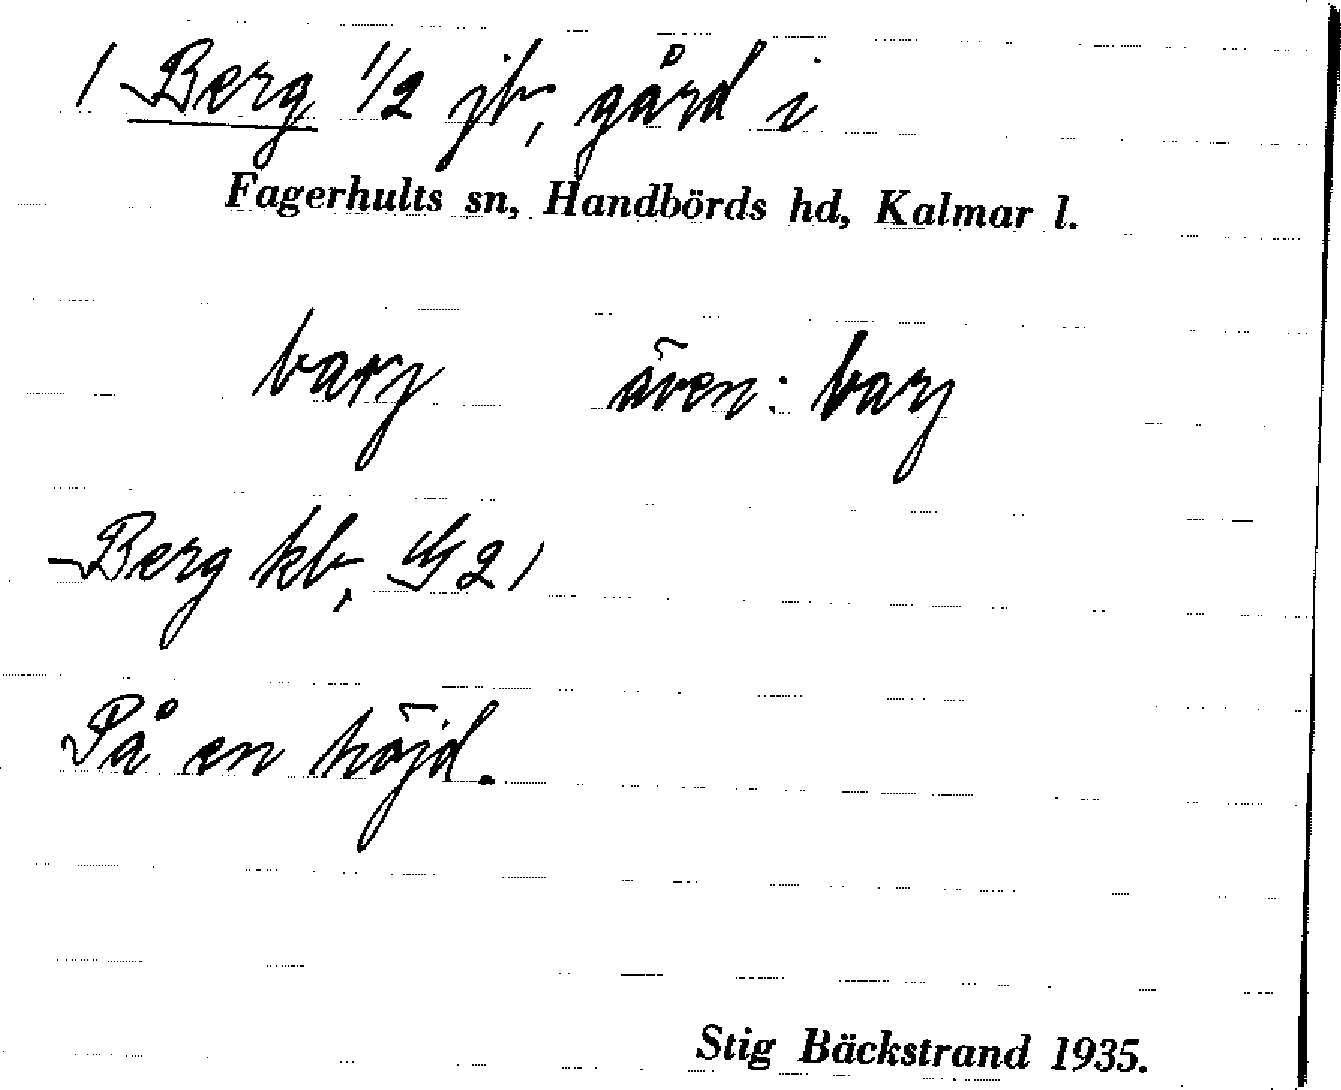 1 Berg 1/2 jb, gård i
Fagerhults sn, Handbörds hd, Kalmar l.
barj även: barj
Berg kb, 21
På en höjd.
Stig Bäckstrand 1935.